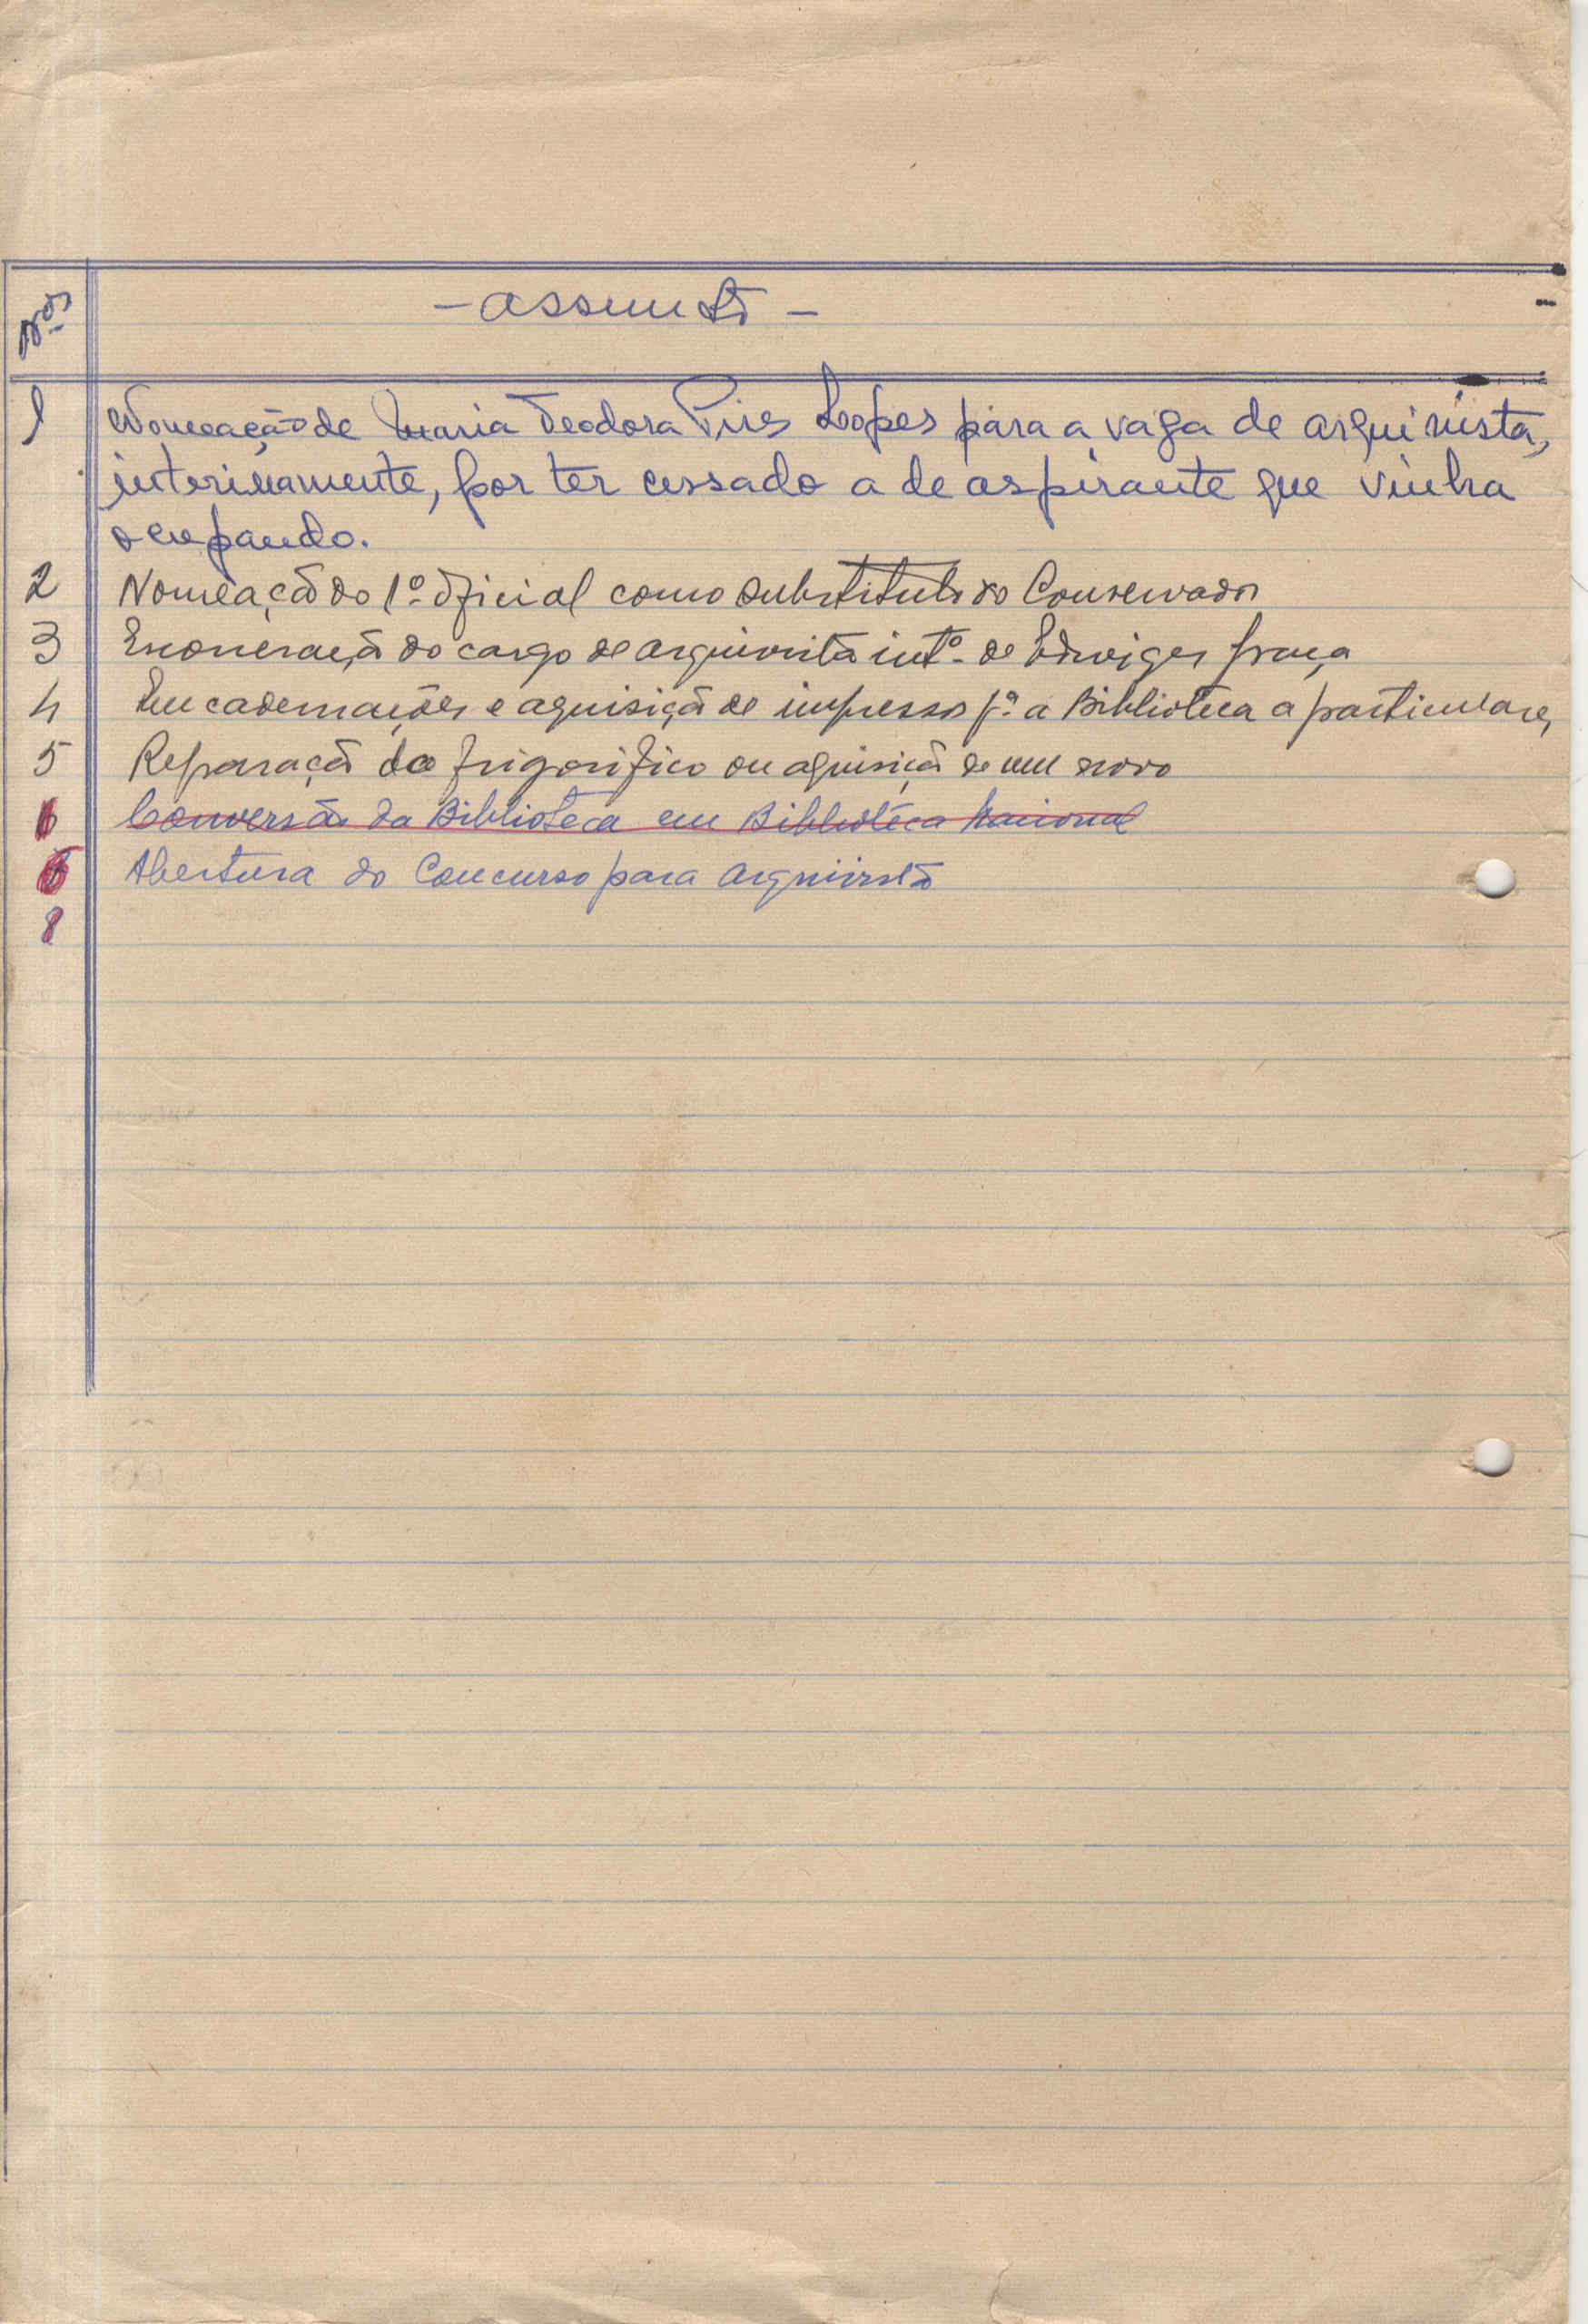 Nos
- Assunto -
1 Nomeação de Maria Teodora Pires Loopes para a vaga de arquivista,
interinamente, por ter cessado a de aspirante que vinha
ocupando.
2 Nomeação do 1º oficial como substituto do Conservador
3 Exoneração do cargo de arquivista intº de Edwiges Graça
4 Encadernações e aquisição de impressos pª a Biblioteca a particulares
5 Reparação do frigorífico ou aquisição de um novo
6 Conversão da Biblioteca em Biblioteca Nacional
6 Abertura do Concurso para Arquivista
8